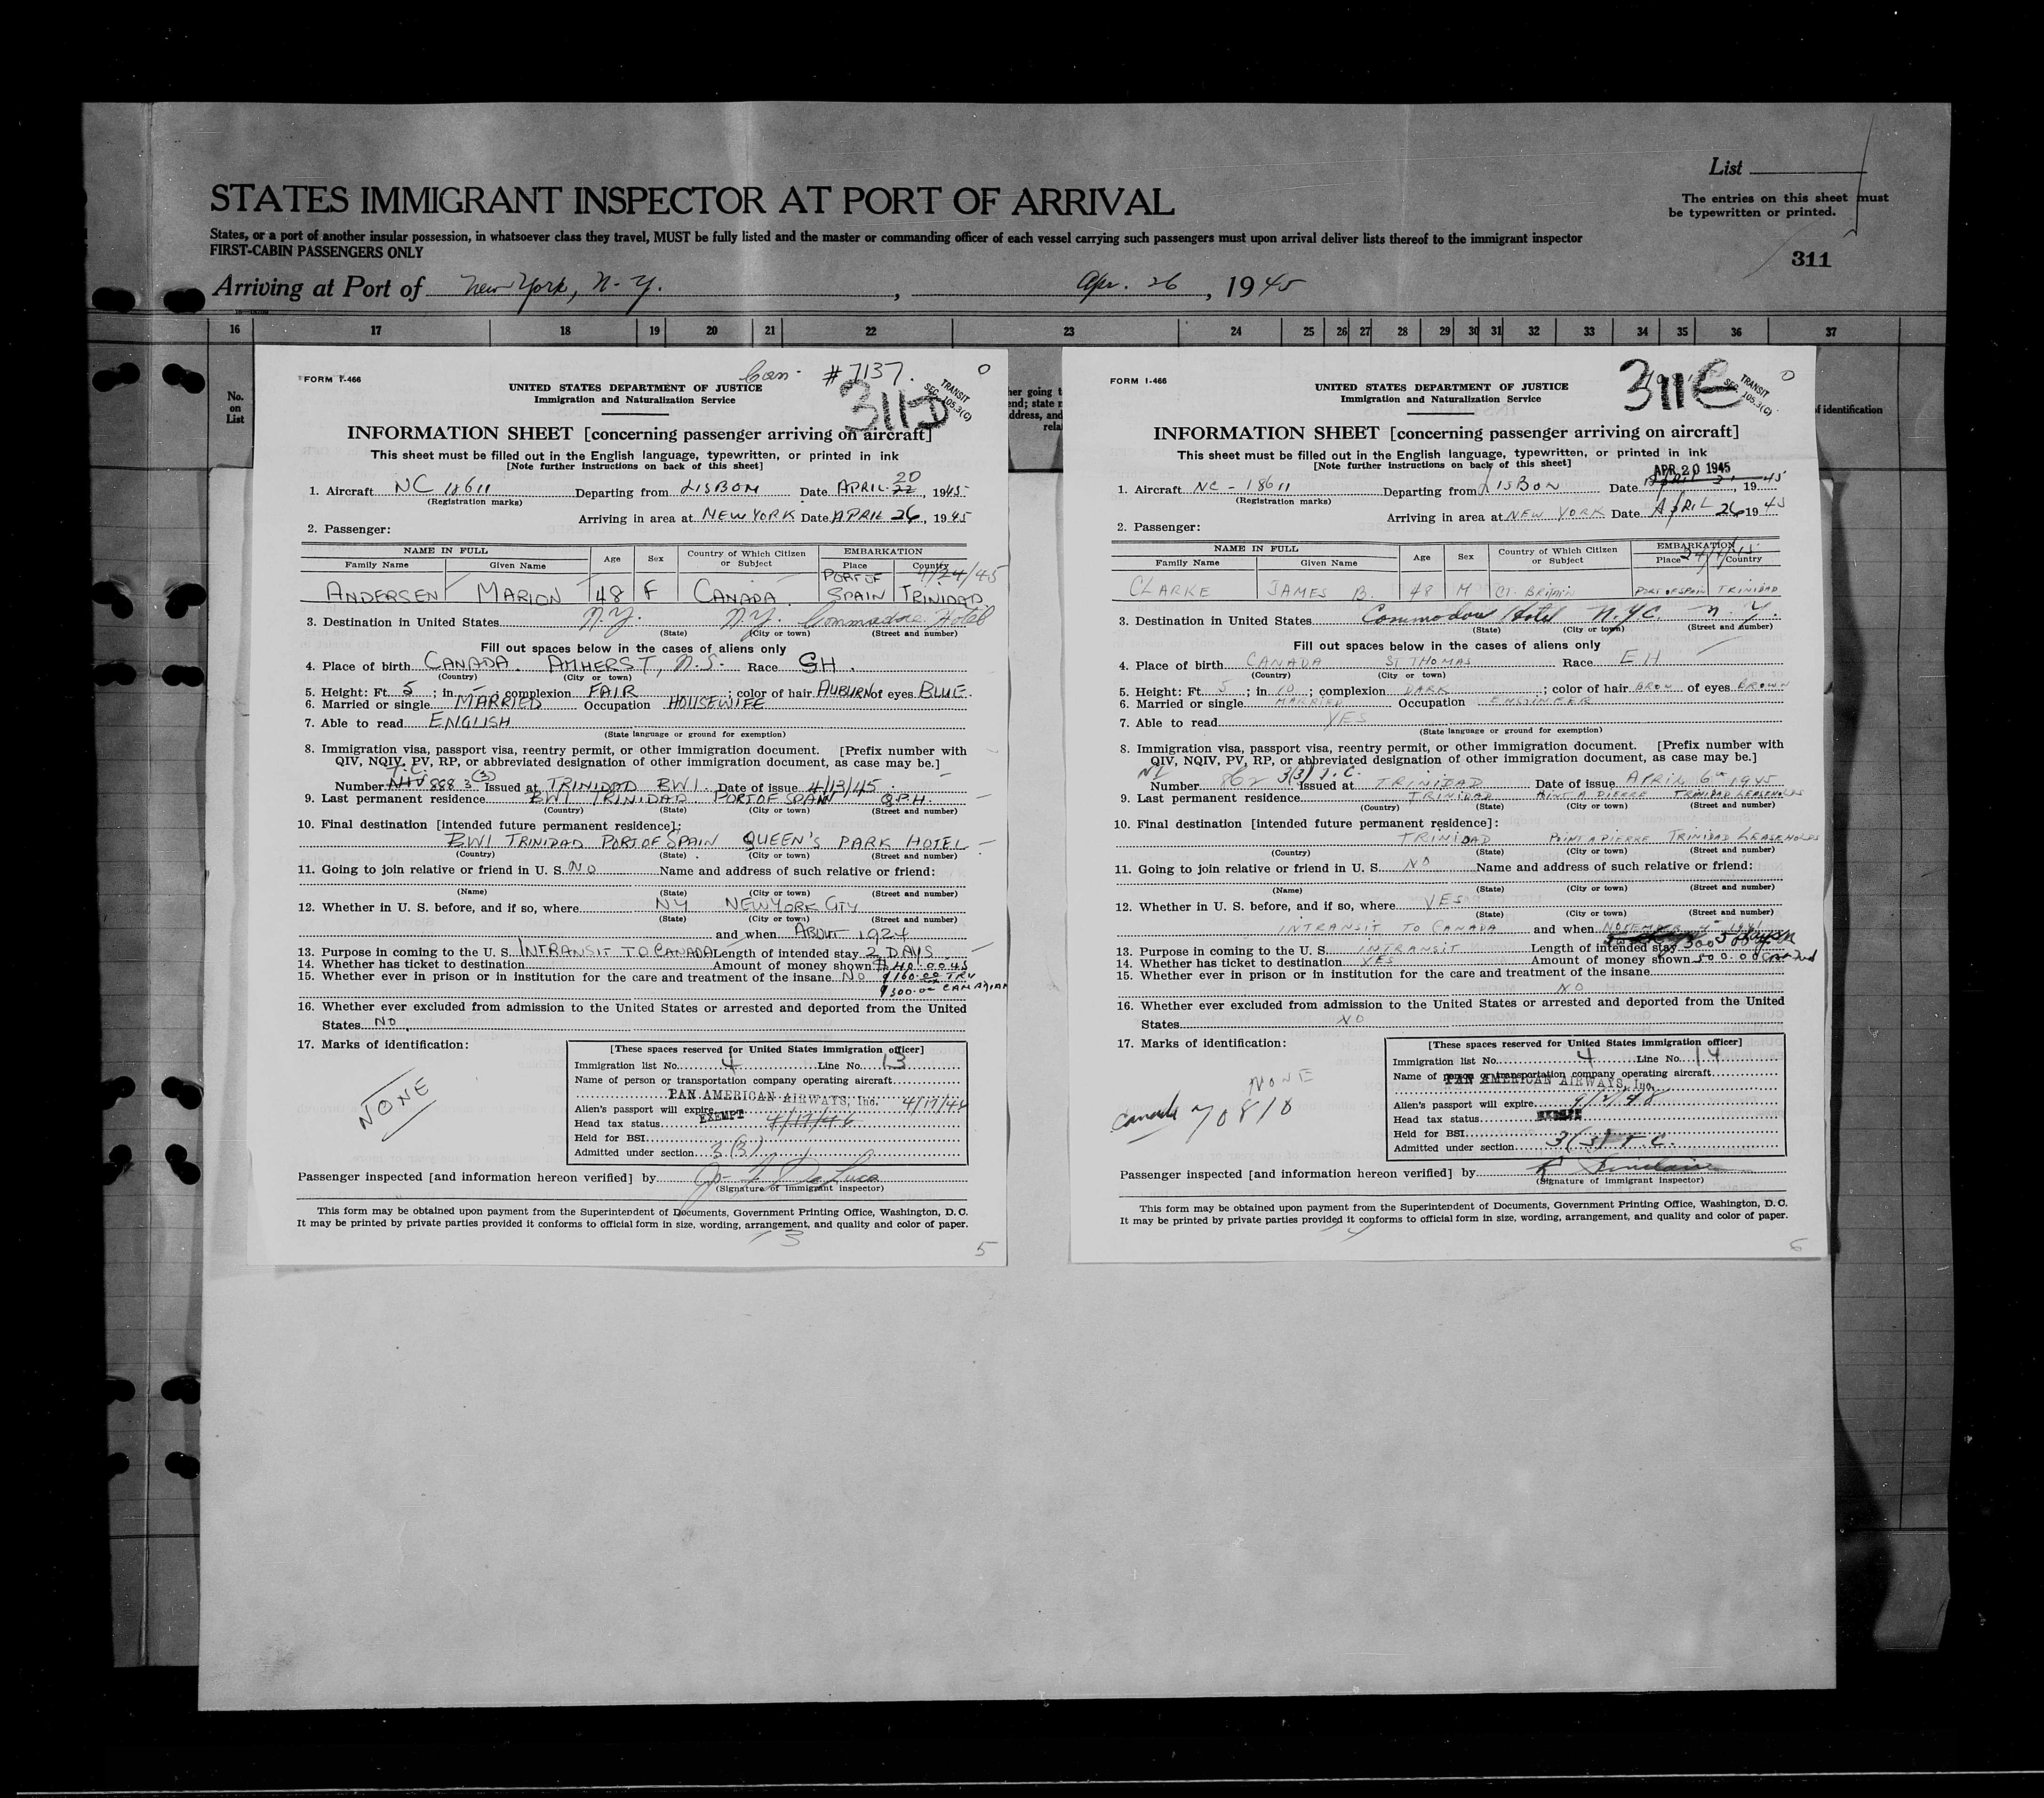 List
STATES IMMIGRANT INSPECTOR AT PORT OF ARRIVAL
The entries on this sheet must
be typewritten or printed.
States, or a port of another insular possession, in whatsoever class they travel, MUST be fully listed and the master or commanding officer of each vessel carrying such passengers must upon arrival deliver lists thereof to the immigrant inspector
FIRST-CABIN PASSENGERS ONLY
311
Arriving at Port of New York, N.Y. , Apr. 26 , 1945
16 17 18 19 20 21 22 23 24 25 26 27 28 29 30 31 32 33 34 35 36 37
No.
on
List
of identification
Can. #7137. 0
FORM I-466
311D
TRANSIT
SEC. 105.3(C)
UNITED STATES DEPARTMENT OF JUSTICE
Immigration and Naturalization Service
INFORMATION SHEET [concerning passenger arriving on aircraft]
This sheet must be filled out in the English language, typewritten, or printed in ink
[Note further instructions on back of this sheet]
20
1. Aircraft NC 18611 Departing from LISBON Date APRIL 22, 1945
(Registration marks)
Arriving in area at NEW YORK Date APRIL 26, 1945
2. Passenger:
NAME IN FULL Age Sex Country of Which Citizen or Subject EMBARKATION
Family Name Given Name Place Country
4/24/45
ANDERSEN MARION 48 F CANADA PORT OF SPAIN TRINIDAD
3. Destination in United States N.Y. N.Y. Commodore Hotel
(State) (City or town) (Street and number)
Fill out spaces below in the cases of aliens only
4. Place of birth CANADA. AMHERST, N.S. Race GH.
(Country) (City or town)
5. Height: Ft. 5 ; in. - ; complexion FAIR ; color of hair AUBURN of eyes BLUE.
6. Married or single MARRIED Occupation HOUSEWIFE
7. Able to read ENGLISH
(State language or ground for exemption)
8. Immigration visa, passport visa, reentry permit, or other immigration document. [Prefix number with
QIV, NQIV, PV, RP, or abbreviated designation of other immigration document, as case may be.]
T.C.
Number 888 3(3) Issued at TRINIDAD BWI. Date of issue 4/13/45
9. Last permanent residence BWI TRINIDAD PORT OF SPAIN Q.P.H.
(Country) (State) (City or town) (Street and number)
10. Final destination [intended future permanent residence]:
BWI TRINIDAD PORT OF SPAIN QUEEN'S PARK HOTEL
(Country) (State) (City or town) (Street and number)
11. Going to join relative or friend in U. S. NO Name and address of such relative or friend:
(Name) (State) (City or town) (Street and number)
12. Whether in U. S. before, and if so, where NY NEW YORK CITY
(State) (City or town) (Street and number)
and when ABOUT 1924
13. Purpose in coming to the U. S. INTRANSIT TO CANADA Length of intended stay 2 DAYS
14. Whether has ticket to destination Amount of money shown $40.00 US
15. Whether ever in prison or in institution for the care and treatment of the insane NO $160.00 TRV
$300.00 CANADIAN
16. Whether ever excluded from admission to the United States or arrested and deported from the United
States NO.
17. Marks of identification:
NONE
[These spaces reserved for United States immigration officer]
Immigration list No. 4 Line No. 13
Name of person or transportation company operating aircraft
PAN AMERICAN AIRWAYS, Inc.
Alien's passport will expire 4/17/46
Head tax status EXEMPT 4/17/46
Held for BSI
Admitted under section 3(3)
Passenger inspected [and information hereon verified] by
(Signature of immigrant inspector)
This form may be obtained upon payment from the Superintendent of Documents, Government Printing Office, Washington, D. C.
It may be printed by private parties provided it conforms to official form in size, wording, arrangement, and quality and color of paper.
13
5
FORM I-466
311E
TRANSIT
SEC. 105.3(C)
0
UNITED STATES DEPARTMENT OF JUSTICE
Immigration and Naturalization Service
INFORMATION SHEET [concerning passenger arriving on aircraft]
This sheet must be filled out in the English language, typewritten, or printed in ink
[Note further instructions on back of this sheet]
APR 20 1945
1. Aircraft NC-18611 Departing from LISBON Date , 1945
(Registration marks)
Arriving in area at NEW YORK Date APRIL 26 1945
2. Passenger:
NAME IN FULL Age Sex Country of Which Citizen or Subject EMBARKATION
Family Name Given Name Place Country
24/4/45
CLARKE JAMES B. 48 M GT. BRITAIN PORT OF SPAIN TRINIDAD
3. Destination in United States Commodore Hotel N.Y.C. N.Y.
(State) (City or town) (Street and number)
Fill out spaces below in the cases of aliens only
4. Place of birth CANADA ST THOMAS Race EH
(Country) (City or town)
5. Height: Ft. 5 ; in. 10 ; complexion DARK ; color of hair BROW of eyes BROWN
6. Married or single MARRIED Occupation ENGINEER
7. Able to read YES
(State language or ground for exemption)
8. Immigration visa, passport visa, reentry permit, or other immigration document. [Prefix number with
QIV, NQIV, PV, RP, or abbreviated designation of other immigration document, as case may be.]
Number 862 3(3) T.C. Issued at TRINIDAD Date of issue APRIL 6th 1945
9. Last permanent residence TRINIDAD POINT A PIERRE TRINIDAD LEASEHOLDS
(Country) (State) (City or town) (Street and number)
10. Final destination [intended future permanent residence]:
TRINIDAD POINT A PIERRE TRINIDAD LEASEHOLDS
(Country) (State) (City or town) (Street and number)
11. Going to join relative or friend in U. S. NO Name and address of such relative or friend:
(Name) (State) (City or town) (Street and number)
12. Whether in U. S. before, and if so, where YES
(State) (City or town) (Street and number)
INTRANSIT TO CANADA and when NOVEMBER
13. Purpose in coming to the U. S. INTRANSIT Length of intended stay
14. Whether has ticket to destination YES Amount of money shown 500.00
15. Whether ever in prison or in institution for the care and treatment of the insane
NO
16. Whether ever excluded from admission to the United States or arrested and deported from the United
States NO
17. Marks of identification:
NONE
Canada 70818
[These spaces reserved for United States immigration officer]
Immigration list No. 4 Line No. 14
Name of person or transportation company operating aircraft
PAN AMERICAN AIRWAYS, Inc.
Alien's passport will expire 9/12/48
Head tax status EXEMPT
Held for BSI
Admitted under section 3(3) T.C.
Passenger inspected [and information hereon verified] by
(Signature of immigrant inspector)
This form may be obtained upon payment from the Superintendent of Documents, Government Printing Office, Washington, D. C.
It may be printed by private parties provided it conforms to official form in size, wording, arrangement, and quality and color of paper.
6